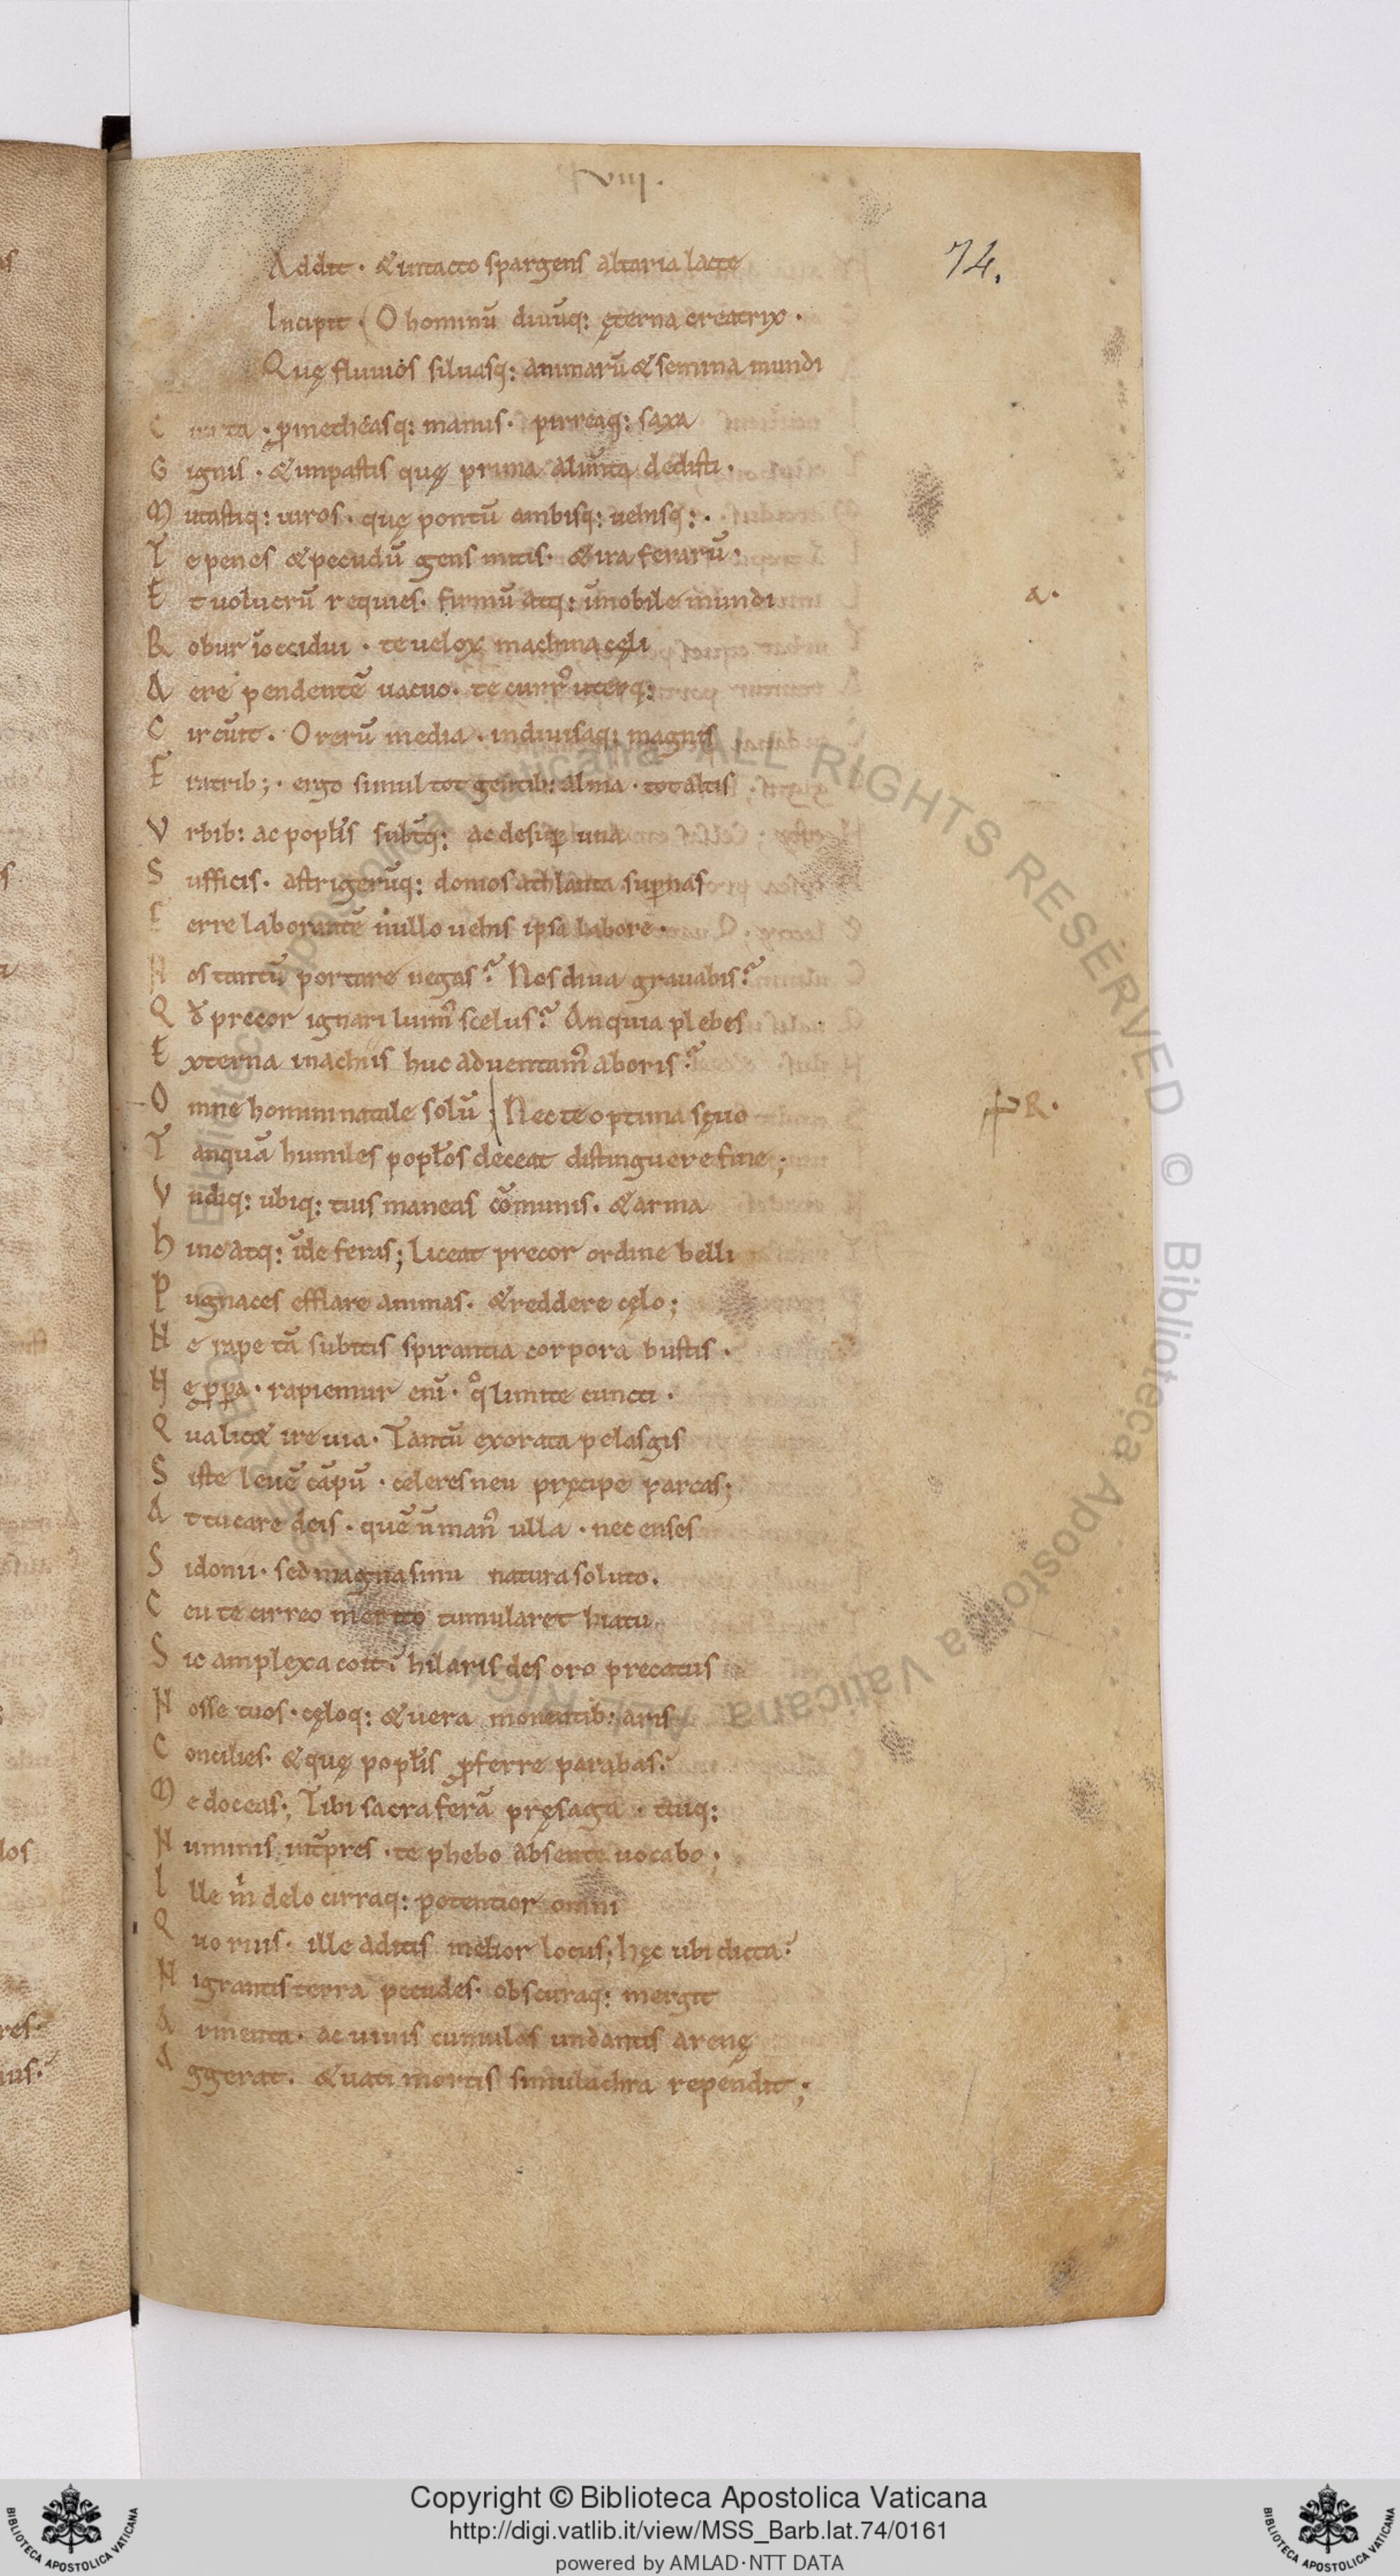 VIII.
74.
Addit · & intacto spargens altaria lacte
Incipit · O hominū diuūq: ęterna creatrix ·
Quę fluuios siluasq: animarū & semina mundi
C uncta · ꝓmetheasq: manus · pirreaq: saxa
G ignis · & impastis quę prima alimta dedisti ·
M utastiq: uiros · quę pontū ambisq: uehisq: ·
T e penes & pecudū gens mitis · & ira ferarū ·
E t uolucrū requies · firmū atq: īmobile mundi
a.
R obur īoccidui · te uelox machina cęli
A ere pendentē uacuo · te curr᷒ uterq:
C ircūit · O rerū media · indiuisaq: magnis
F ratrib; · ergo simul tot gentib: alma · tot altis
V rbib: ac popłis subtq: ac desup̱ una
S ufficis · astrigerūq: domos athlanta sup̱nas
F erre laborantē nullo uehis ipsa labore ·
N os tantū portare negas? Nos diua grauabis?
Q ď precor ignari luim᷒ scelus? An quia plebes
E xterna inachiis huc aduentam᷒ ab oris?
O mne hominum natale solū; Nec te optima sęuo
R.
T anquā humiles popłos deceat distinguere fine;
V ndiq: ubiq: tuis maneas cōmunis · & arma
H inc atq: īde feras; Liceat precor ordine belli
P ugnaces efflare animas · & reddere cęlo;
N e rape tā subitis spirantia corpora bustis ·
N e ꝓpa · rapiemur enī · q° limite cuncti ·
Q ua lic& ire uia · Tantū exorata pelasgis
S iste leuē cāpū · celeres neu pręcipe parcas;
A t tu care deis · quē n̄ man᷒ ulla · nec enses
S idonii · sed magna sinu natura soluto.
C eu te cirreo merito tumularet hiatu
S ic amplexa coit · hilaris des oro precatus
N osse tuos · cęloq: & uera monentib: aris
C oncilies · & quę popłis ꝓferre parabas ·
M e doceas; Tibi sacra ferā pręsaga · tuiq:
N uminis int̄pres · te phebo absente uocabo;
I lle m̍ delo cirraq: potentior omni
Q uo ruis · ille aditis melior locus; hęc ubi dicta ·
N igrantis terra pecudes · obscuraq: mergit
A rmenta · ac uiuis cumulos undantis arenę
A ggerat · & uati mortis simulachra rependit;
Copyright © Biblioteca Apostolica Vaticana
http://digi.vatlib.it/view/MSS_Barb.lat.74/0161
powered by AMLAD·NTT DATA